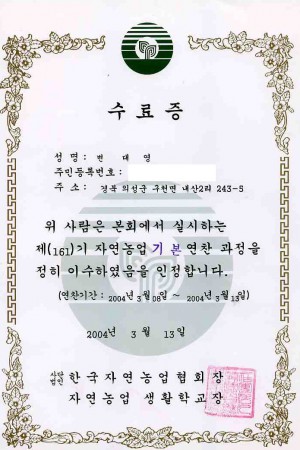 수료증
성 명 : 변 대 영
주민등록번호 :
주 소 : 경북 의성군 구천면 내산2리 243-5
위 사람은 본회에서 실시하는
제(161)기 자연농업 기본 연찬 과정을
정히 이수하였음을 인정합니다.
(연찬기간 : 2004년 3월 08일 ~ 2004년 3월 13일)
2004년 3 월 13일
사단법인 한국자연농업협회장
자연농업 생활학교장